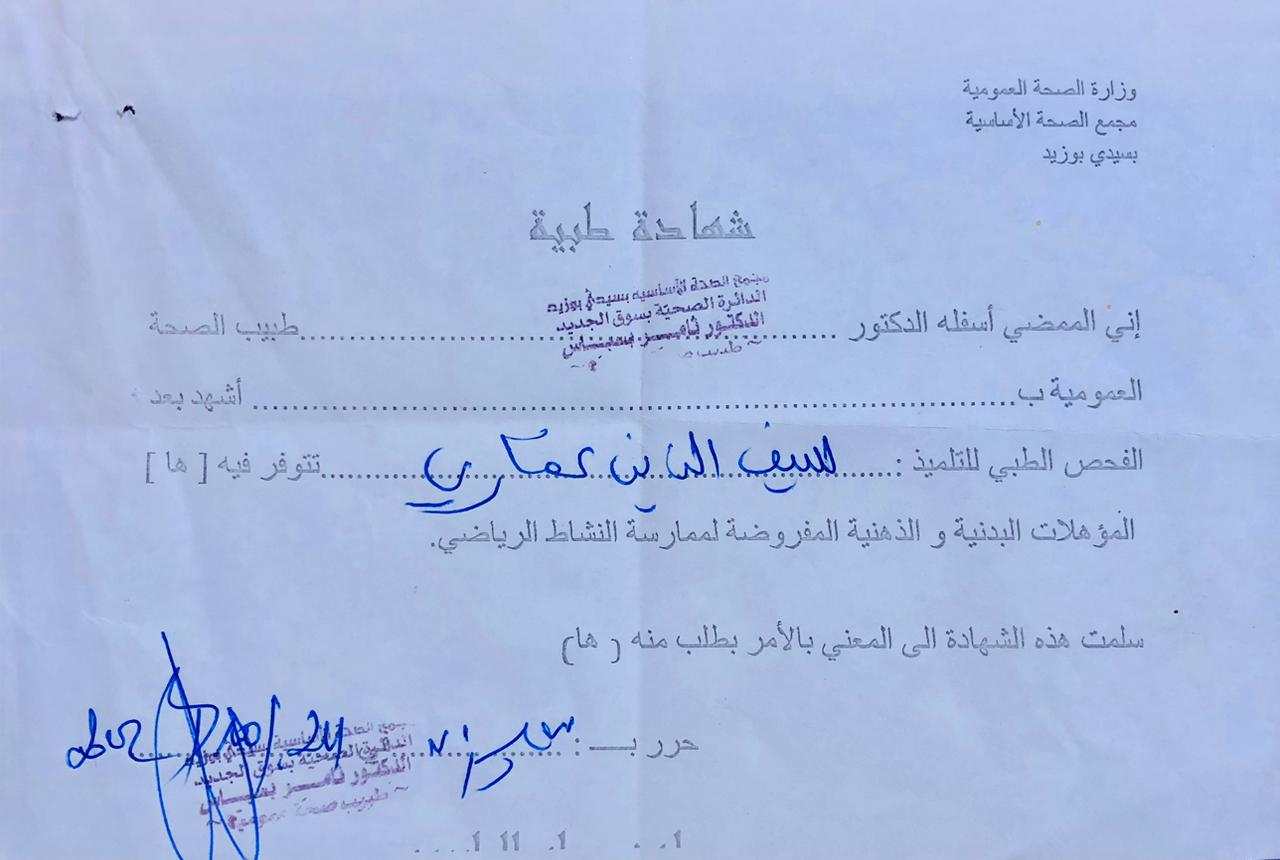 وزارة الصحة العمومية
مجمع الصحة الأساسية
بسيدي بوزيد
شهادة طبية
مجمع الصحة الأساسية بسيدي بوزيد
الدائرة الصحية بسوق الجديد
الدكتور ثامر
إني الممضي أسفله الدكتور ........ طبيب الصحة
العمومية ب........ أشهد بعد
الفحص الطبي للتلميذ : سيف الدين عماري تتوفر فيه [ ها ]
المؤهلات البدنية و الذهنية المفروضة لممارسة النشاط الرياضي.
سلمت هذه الشهادة الى المعني بالأمر بطلب منه ( ها)
حرر بـ : 24
مجمع الصحة الأساسية بسيدي بوزيد
الدائرة الصحية بسوق الجديد
الدكتور ثامر
~ طبيب صحة عمومية ~